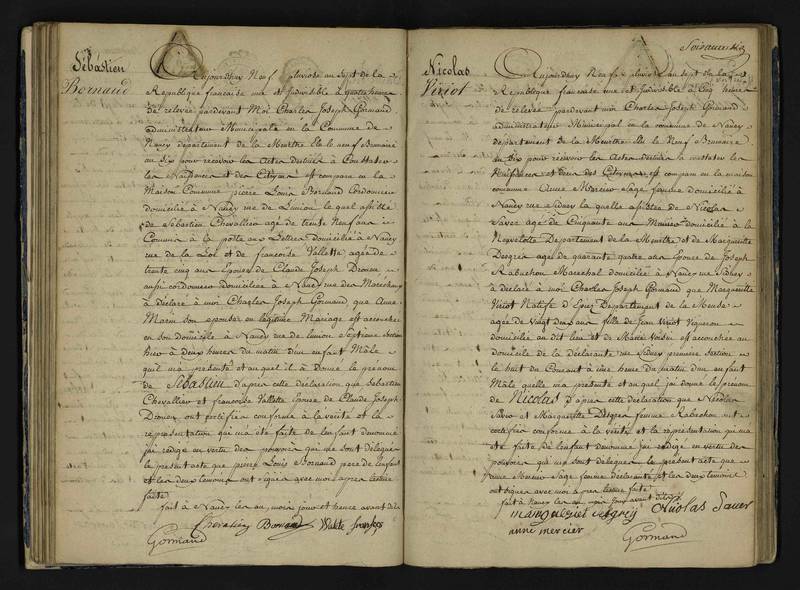 Sébastien
Bornaud
Aujourdhuy Neuf pluviose an sept de la
République francaise une et Indivisible à quatre heures
de relevée pardevant Moi Charles Joseph Gormand
administrateur Municipale en la Commune de
Nancy département de la Meurthe Elu le neuf Brumaire
au Six pour recevoir les Actes destinés à Constater
les Naissances et des Citoyens est comparu en la
Maison Commune pierre Louis Bornaud Cordonnier
domicilié à Nancy rue de Lunion le quel assisté
de Sébastien Chevallier agé de trente Neuf ans
Commis à la poste aux Lettres domicilié à Nancy
rue de la Loi et de francoise Vallette agée de
trente cinq ans Epouse de Claude Joseph Drouin
aussi cordonnier Domiciliée à Nancy rue des Marechaux
à déclaré à moi Charles Joseph Gormand, que Anne
Marin son epouse en légitime Mariage est accouchée
en son domicile à Nancy rue de lunion Septieme Section
hier à deux heures du matin dun enfant Mâle
quil ma presenté et auquel il à donné le prenom
de Sébastien daprès cette déclaration que Sébastien
Chevallier et francoise Vallette Epouse de Claude Joseph
Drouin ont certifiée conforme à la vérité et la
représentation qui ma été faite de lenfant dénommé
jai rédigé en vertu des pouvoirs qui me sont délégués
le présent acte que pierre Louis Bornaud pere de lenfant
et les deux temoins ont signés avec moi apres lecture
faite
fait à Nancy les an moins jour et heure avant dits
Chevalier Bornaud
Gormand
Nicolas
Viriot
Aujourdhuy Neuf pluviose an sept de la
République francaise une et Indivisible à Cinq heures
de relevée pardevant moi Charles Joseph Gormand
administrateur Municipal en la commune de Nancy
département de la Meurthe Elu le Neuf Brumaire
au Six pour recevoir les Actes destinés à constater les
Naissances et deces des Citoyens est comparu en la maison
commune Anne Mercier Sage femme domicilié à
Nancy rue Sidney la quelle assistée de Nicolas
Saver agé de Cinquante ans domicilié à la
Neuvelotte Département de la Meurthe et de Marguerite
Desgrey agée de quarante quatre ans Epouse de Joseph
Rabuchon Marechal domicilée à Nancy rue Sidney
à déclaré à moi Charles Joseph Gormand que Marguerite
Viriot Native d'Epiez Département de la Meuse
agée de Vingt deux ans fille de Jean Viriot Vigneron
domicilié au dit lieu et de Marie Voirin est accouchée au
domicile de la Déclarante rue Sidney premiere Section
le huit du Courant à une heure du matin dun enfant
Mâle quelle ma présenté et auquel jai donné le prenom
de Nicolas d'après cette déclaration que Nicolas
Saver et Marguerite Desgrey femme Rabuchon ont
certifiée conforme à la vérité et la représentation qui ma
été faite de lenfant dénommé Jai rédigé en vertu des
pouvoirs qui me sont délégués le présent acte que
Anne Mercier Sage femme déclarante et les deux témoins
ont signés avec moi apres lecture faite
fait à Nancy les an mois jour avant dits
Nicolas Saver
anne mercier
Gormand